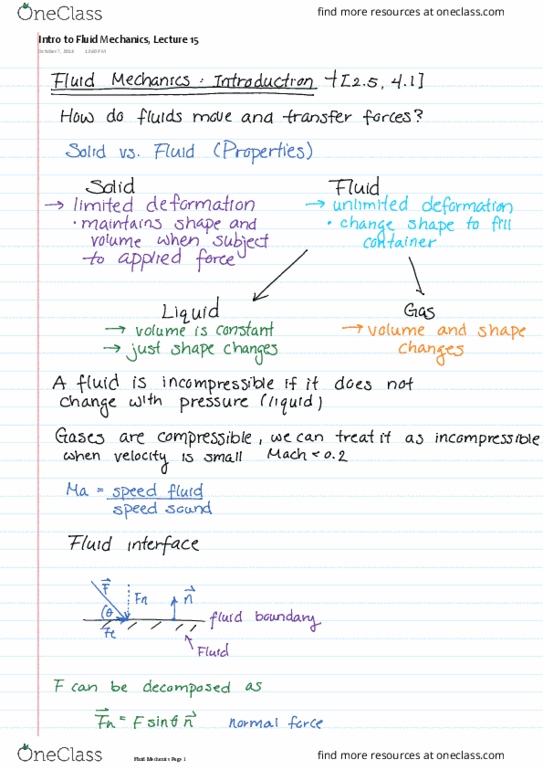 OneClass find more resources at oneclass.com
Intro to Fluid Mechanics, Lecture 15
12:40 PM
Fluid Mechanics: Introduction → [2.5, 4.1]
How do fluids move and transfer forces?
Solid vs. Fluid (Properties)
Solid
→ limited deformation
• maintains shape and
volume when subject
to applied force
Fluid
→ unlimited deformation
• change shape to fill
container
Liquid
→ volume is constant
→ just shape changes
Gas
→ volume and shape
changes
A fluid is incompressible if it does not
change with pressure (liquid)
Gases are compressible, we can treat it as incompressible
when velocity is small Mach < 0.2
Ma = speed fluid
speed sound
Fluid interface
F Fn n
θ
Ft
fluid boundary
Fluid
F can be decomposed as
Fn = F sinθ n normal force
OneClass Fluid Mechanics Page 1 find more resources at oneclass.com